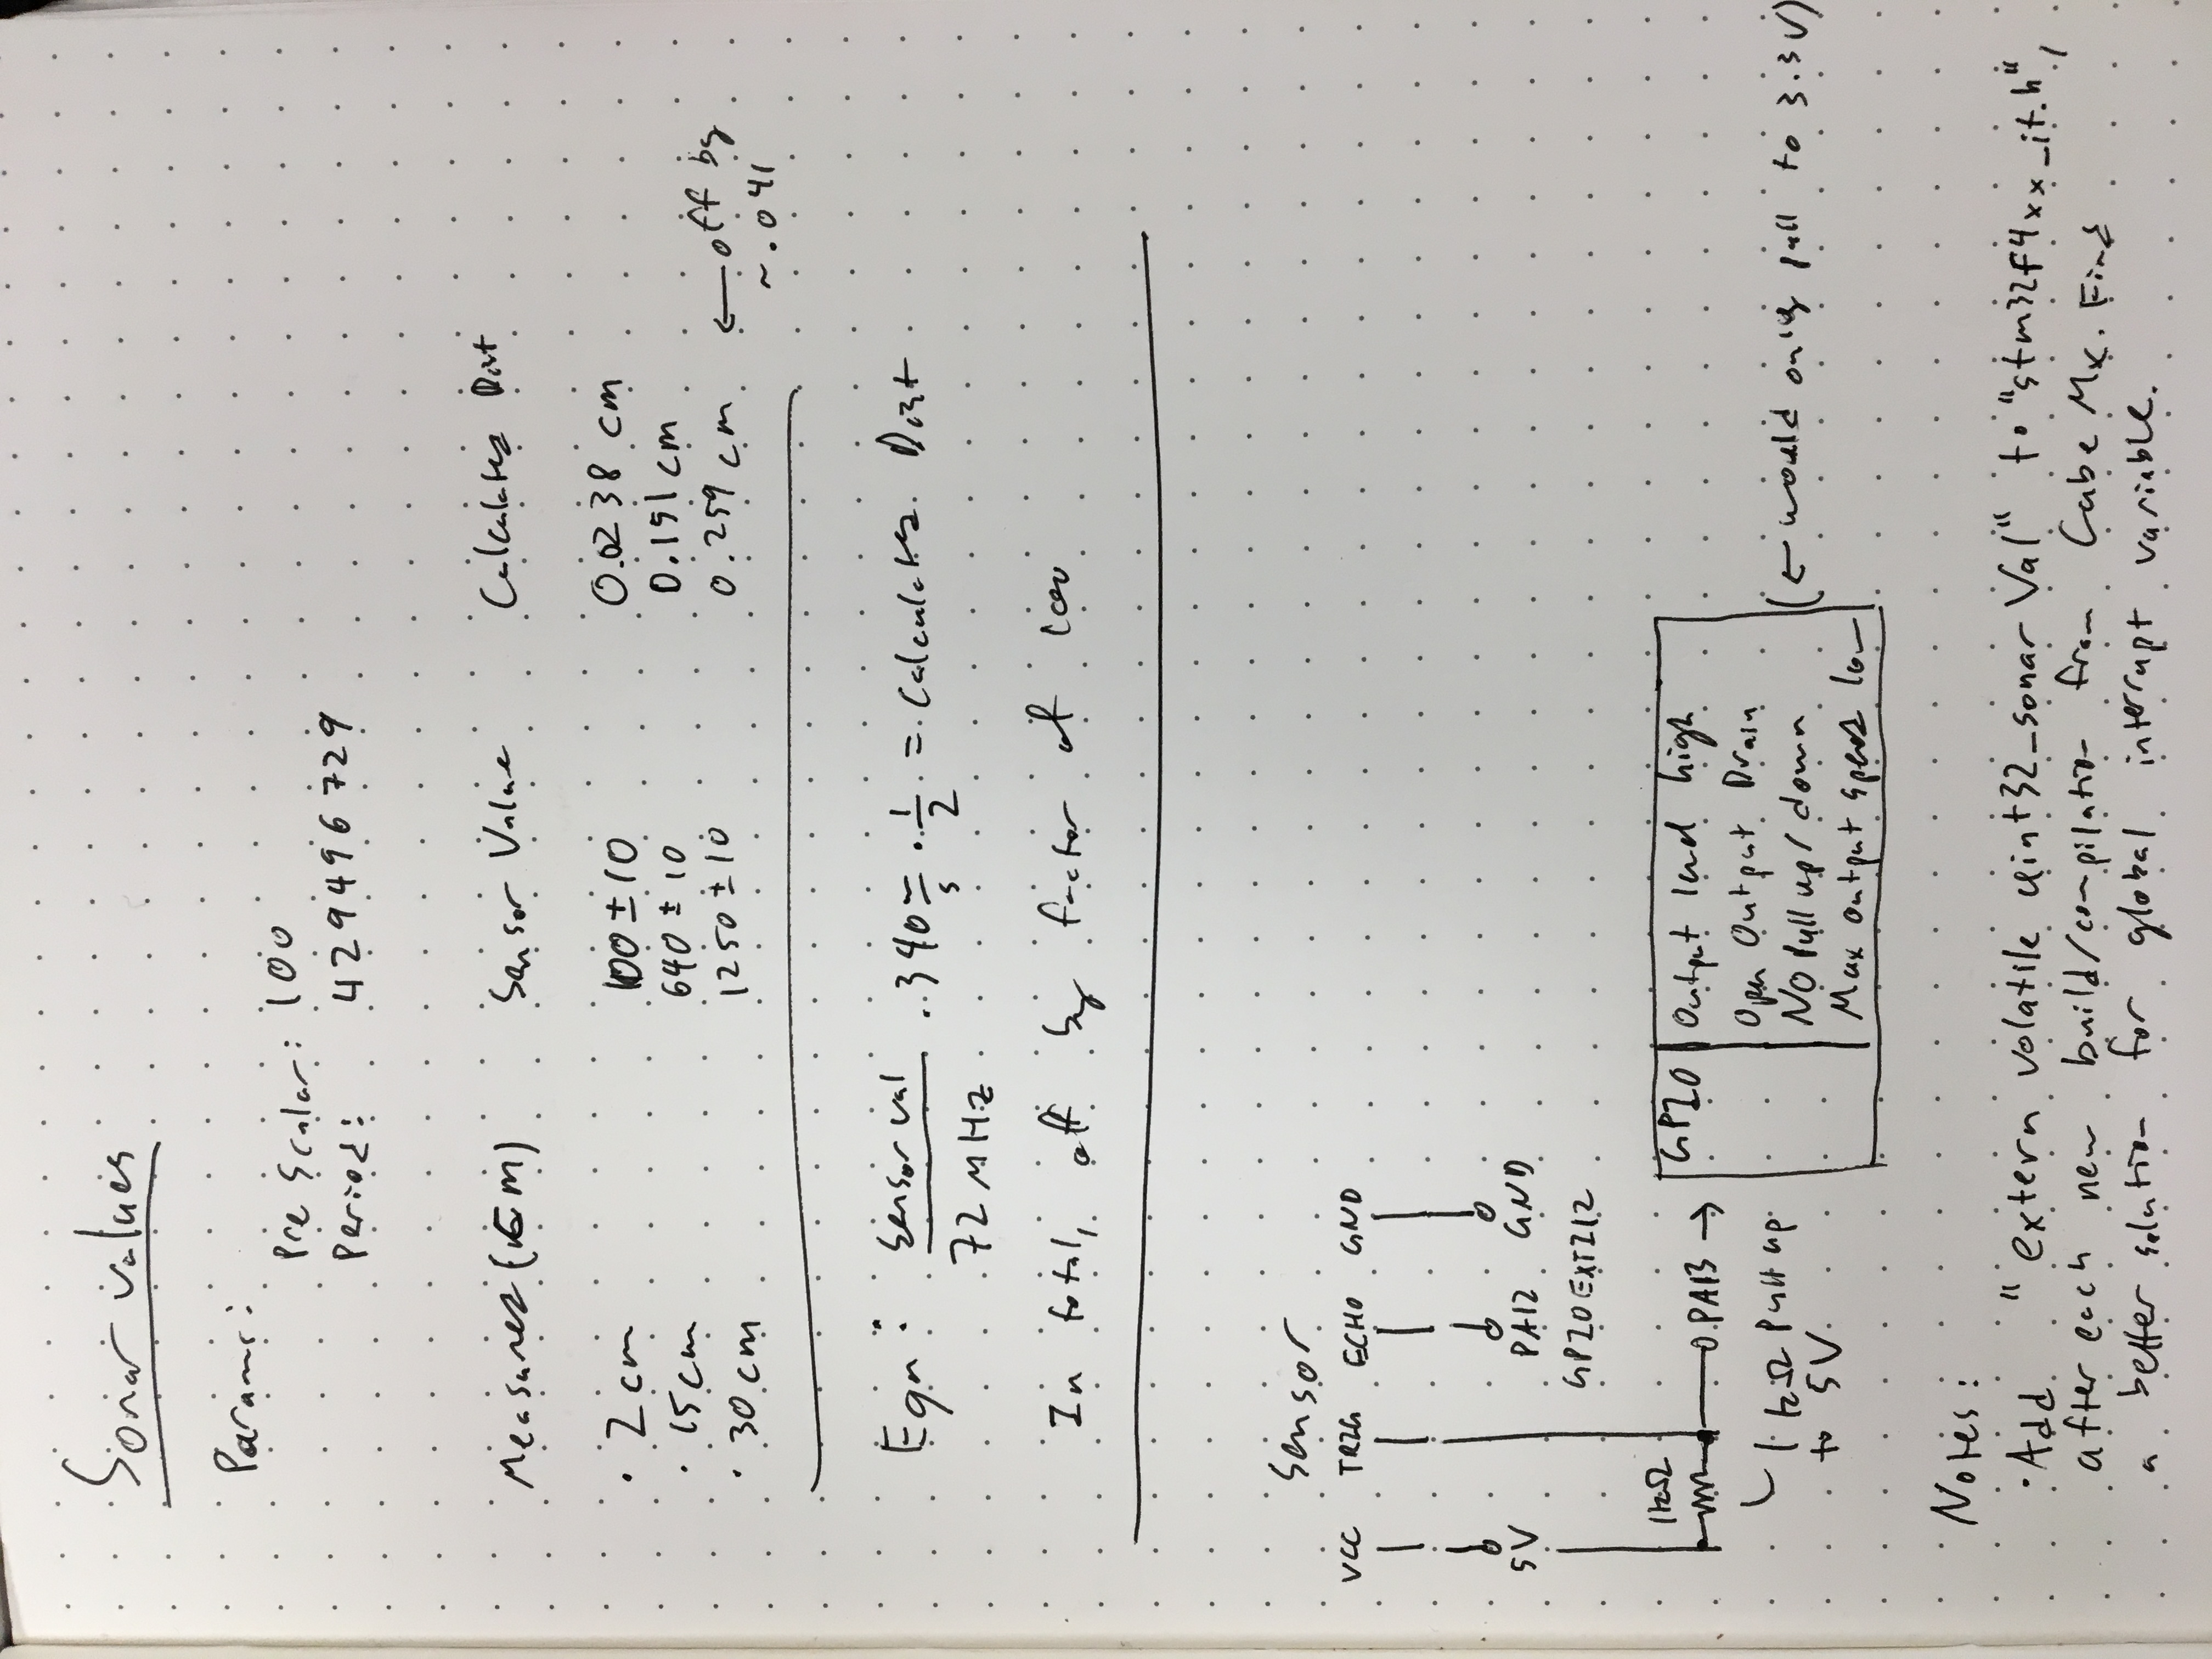 Sonar values
Params:
Pre Scalar: 100
Period: 429496729
Measured (cm) Sensor Value Calculated Dist
· 2 cm 100 ± 10 0.0238 cm
· 15 cm 640 ± 10 0.151 cm
· 30 cm 1250 ± 10 0.259 cm ← off by
~.041
Eqn: Sensor val / 72 MHz · 340 m/s · 1/2 = Calculated Dist
In total, off by factor of 100
Sensor
VCC TRIG ECHO GND
5V PA12 GND
GPIO EXTI12
1kΩ
PA13 → GPIO Output level high
Open Output Drain
1kΩ Pull up No Pull up/down (← would only pull to 3.3V)
to 5V Max output speed low
Notes:
· Add "extern volatile uint32_sonar Val" to "stm32f4xx_it.h",
after each new build/compilation from Cube Mx. Find
a better solution for global interrupt variable.